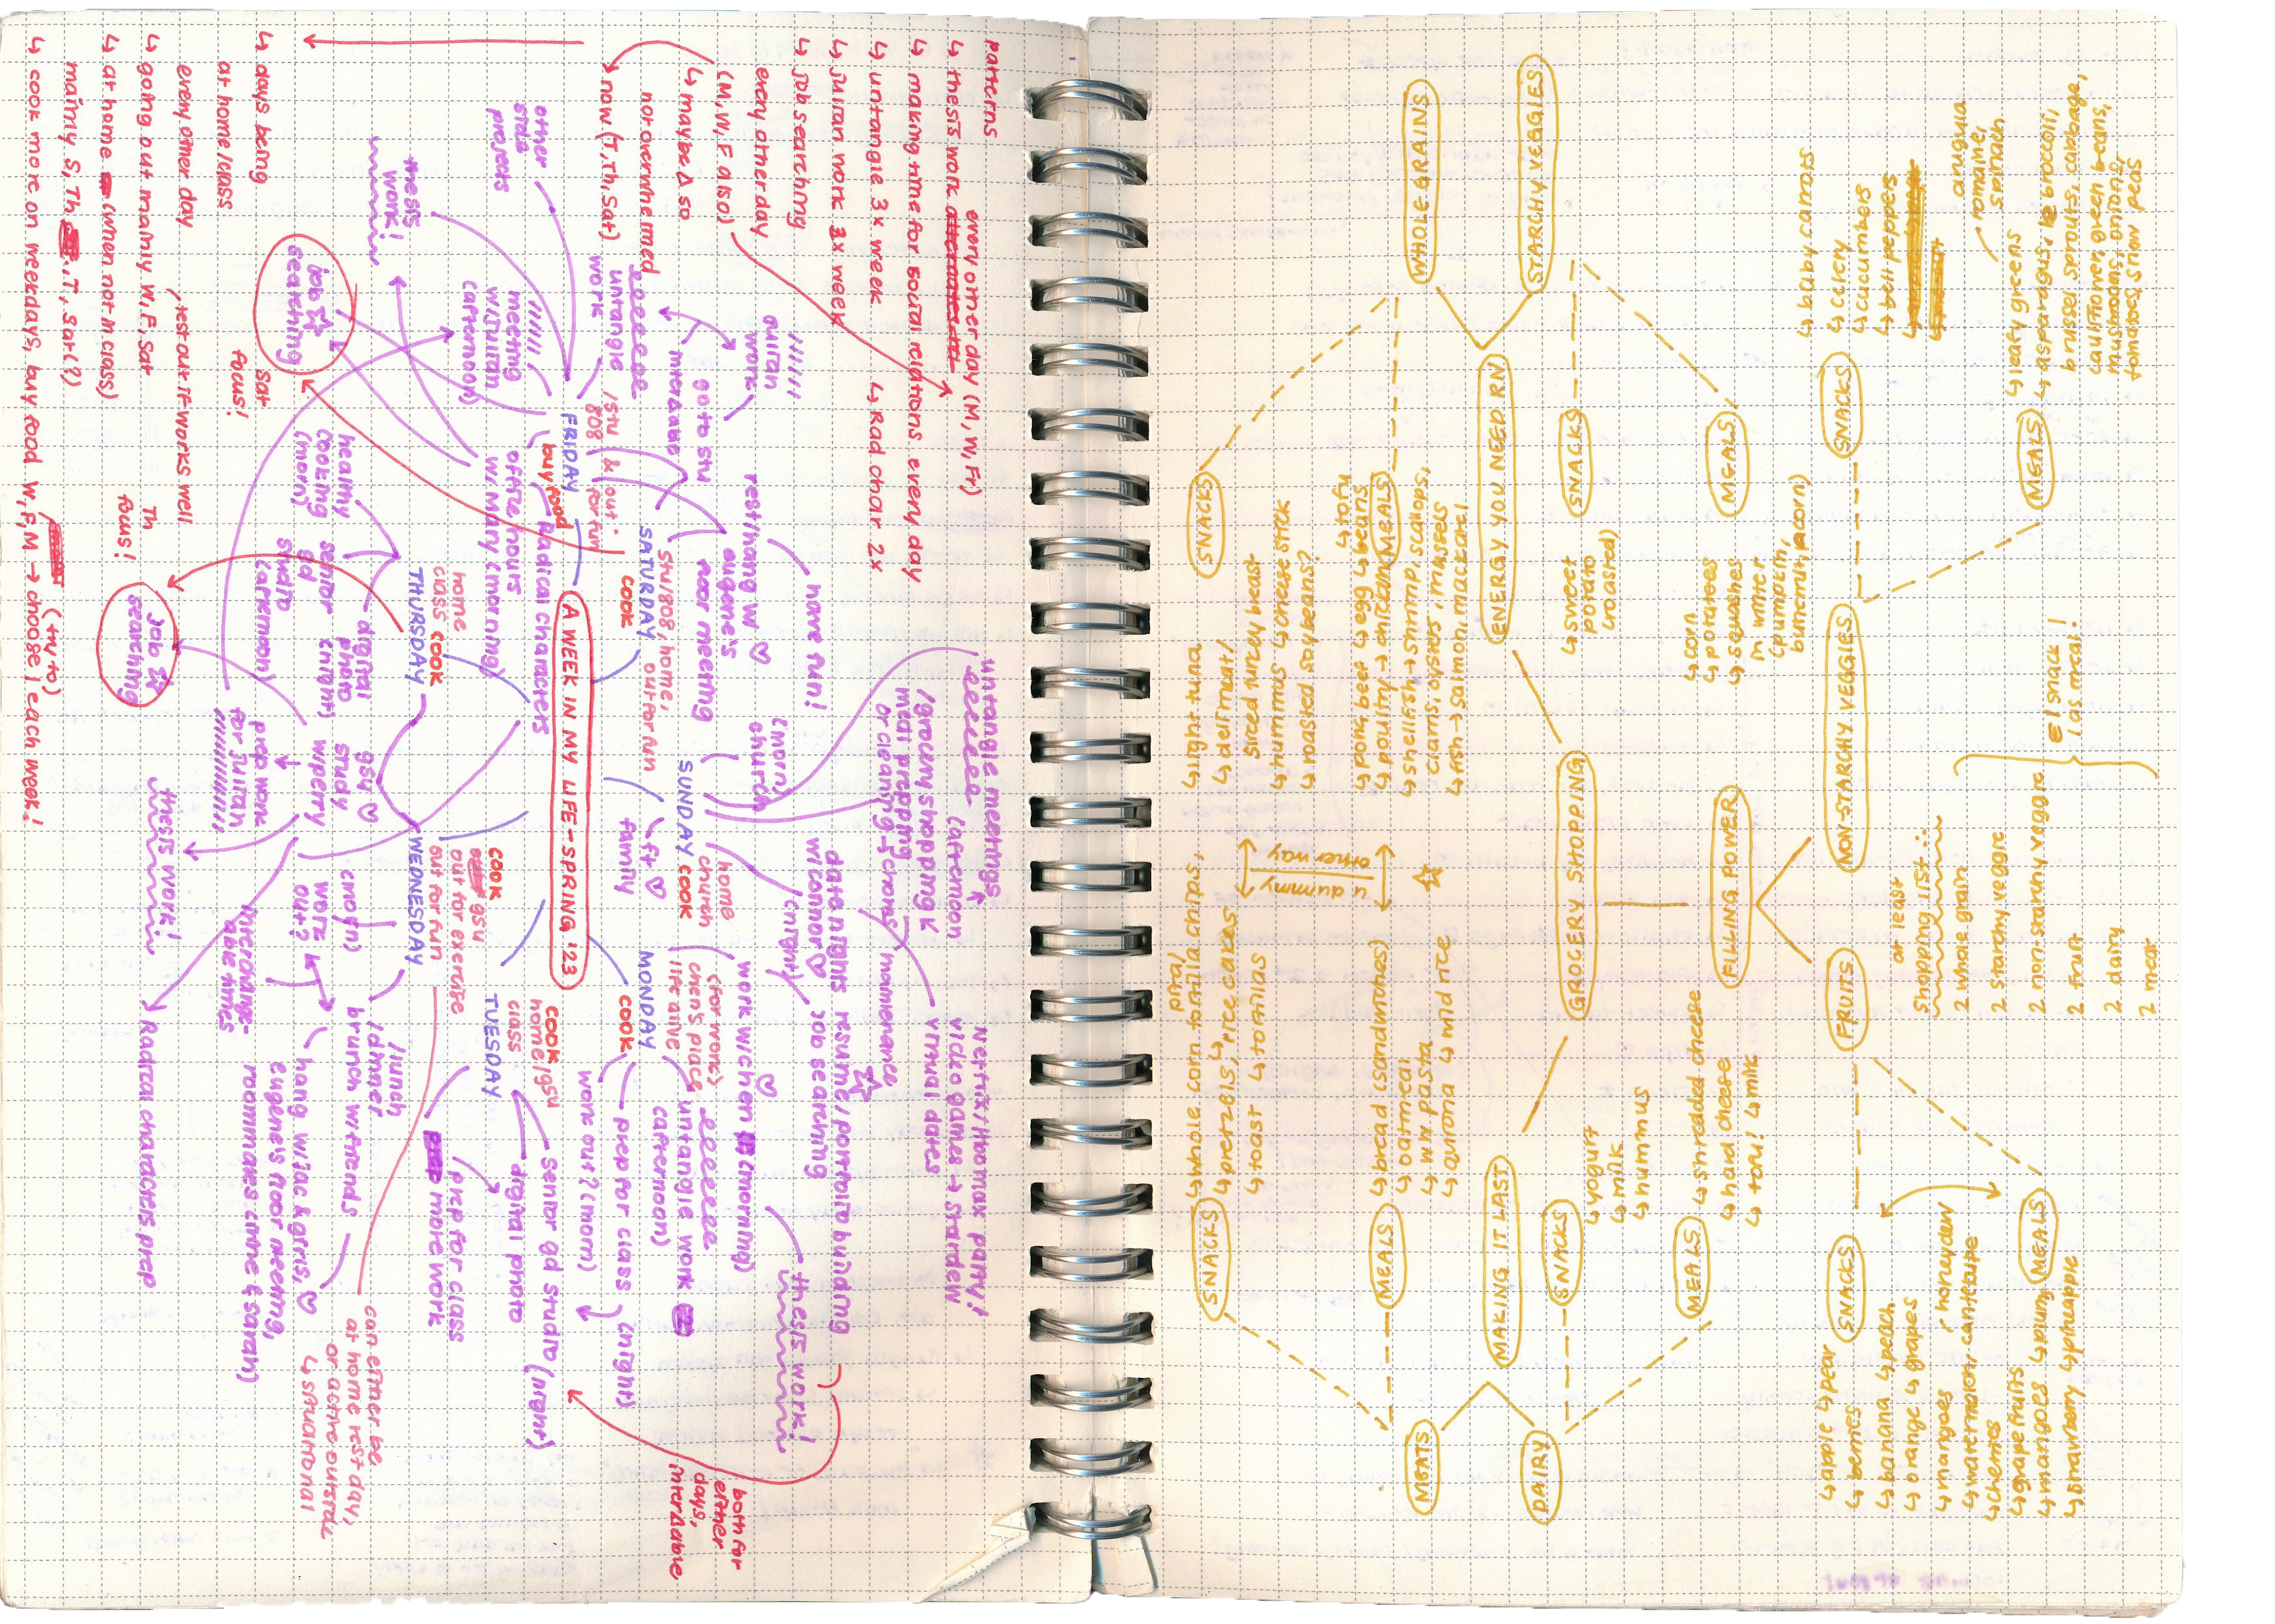 patterns
↳ thesis work every other day (M, W, F+)
↳ making time for social relations every day
↳ untangle 3x week
↳ Rad char 2x
↳ Juitan work 3x week
↳ job searching
every other day
(M, W, F also)
↳ maybe Δ so
not overwhelmed
↳ now (T, Th, Sat)
↳ days being
at home/class
every other day
test out if works well
↳ going out mainly W, F, Sat
↳ at home (when not in class)
mainly S, Th, T, Sat(?)
↳ cook more on weekdays, buy food W, F, M → choose 1 each week!
(try to)
A WEEK IN MY LIFE - SPRING '23
SUNDAY COOK
home
church
(morn)
church
↳ ft ♡
family
untangle meetings
(afternoon)
/grocery shopping
meal prepping
or cleaning & chores/
date nights
w/connor ♡
(night)
Netflix/hbomax party!
video games → stardew
virtual dates
resume/portfolio building
job searching
MONDAY
COOK
work w/chen (morning)
(for work)
chen's place
untangle work
(afternoon)
prep for class
(night)
work out? (morn)
thesis work!
both for
either
days,
TUESDAY
COOK
home/gsu
class
senior gd studio (night)
digital photo
prep for class
more work
WEDNESDAY
COOK
gsu
out for exercise
out for fun
(morn)
work
out?
/lunch
/dinner
brunch w/friends
hang w/jac & gfris, ♡
eugene's floor meeting,
roommates (mine & sarah)
interchange-
able times
Radical characters prep
thesis work!
can either be
at home rest day,
or active outside
↳ situational
THURSDAY COOK
home
class
digital
photo
(night)
senior
gd
studio
(afternoon)
healthy
cooking
(morn)
gsu ♡
study
w/perry
prep work
for Juitan
job ☆
searching
Th
focus!
FRIDAY
buy food
/stu &
808
out
for fun
radical characters
office hours
w/Mary (morning)
meeting
w/Juitan
(afternoon)
untangle
work
other
stu
projects
thesis
work!
job ☆
searching
Sat
focus!
SATURDAY
COOK
stu/808, home,
out for fun
go to stu
rest/hang w ♡
eugene's
floor meeting
have fun!
Juitan
work
GROCERY SHOPPING
ENERGY YOU NEED RN
WHOLE GRAINS
STARCHY VEGGIES
SNACKS
↳ sweet
potato
(roasted)
MEALS
↳ corn
↳ potatoes
↳ squashes
in winter
(pumpkin,
butternut, acorn)
SNACKS
↳ light tuna
↳ deli meat/
sliced turkey breast
↳ hummus ↳ cheese stick
↳ roasted soybeans?
MEALS
↳ tofu
↳ pork, beef ↳ egg ↳ beans
↳ poultry → chicken
↳ shellfish → shrimp, scallops,
clams, oysters, mussels
↳ fish → salmon, mackerel
FILLING POWER
NON-STARCHY VEGGIES
SNACKS
↳ baby carrots
↳ celery
↳ cucumbers
↳ bell peppers
MEALS
↳ leafy greens
arugula
romaine,
spinach
↳ asparagus, broccoli,
brussel sprouts, cabbage,
cauliflower, green beans,
mushrooms, onions,
tomatoes, snow peas
FRUITS
SNACKS
↳ apple ↳ pear
↳ berries
↳ banana ↳ peach
↳ orange ↳ grapes
↳ mangoes / honeydew
↳ watermelon, canteloupe
↳ cherries
MEALS
↳ grapefruits
↳ mangoes ↳ plum
↳ strawberry ↳ pineapple
at least
shopping list:
2 whole grain
2 starchy veggie
2 non-starchy veggie
2 fruit
2 dairy
2 meat
1 snack
1 as meal!
MAKING IT LAST
MEATS
DAIRY
SNACKS
↳ yogurt
↳ milk
↳ hummus
MEALS
↳ shredded cheese
↳ hard cheese
↳ tofu! ↳ milk
SNACKS
↳ whole corn tortilla chips,
pita/
↳ pretzels, ↳ rice cakes
↳ toast ↳ tortillas
MEALS
↳ bread (sandwiches)
↳ oatmeal
↳ ww pasta
↳ quinoa ↳ wild rice
other way
u dummy